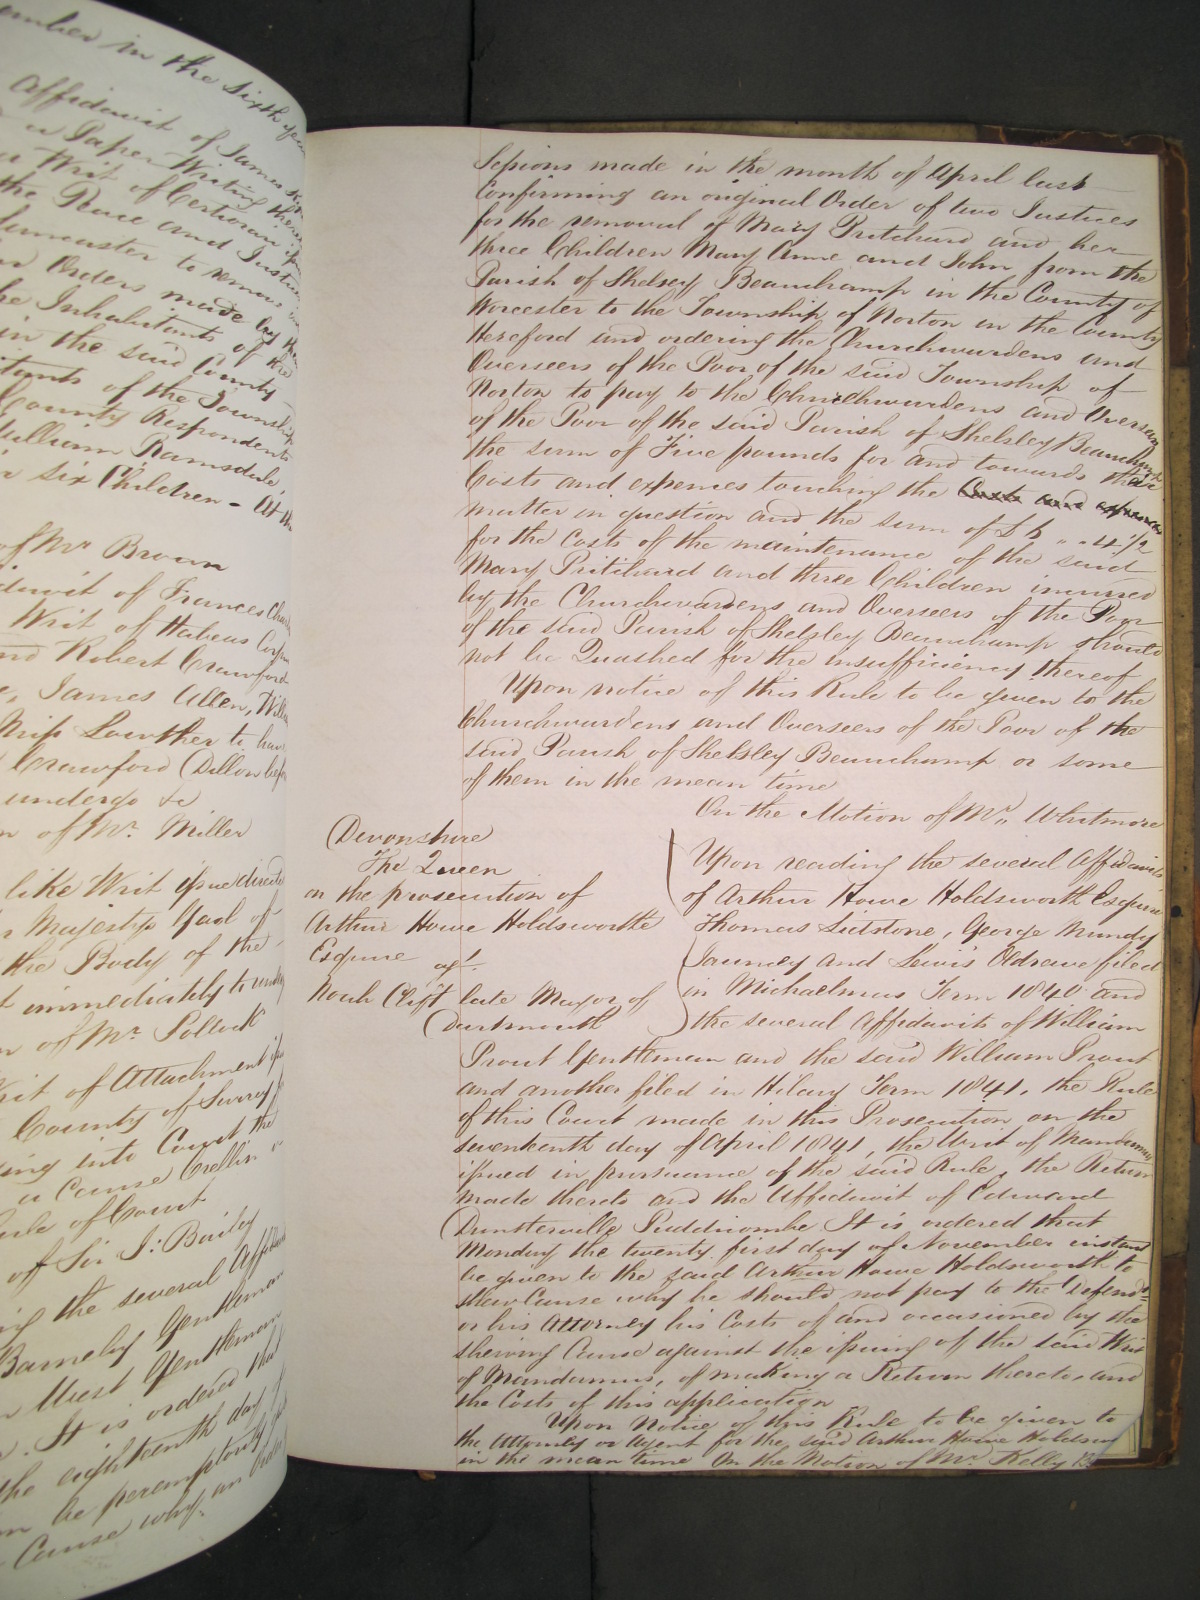 ember in the Sixth year
Affidavit of James
a Paper Writing
Writ of Certiorari
the Peace and
Lancaster to remove
Orders made by
the Inhabitants of the
in the said County
of the Township
County Respondents
William Ramsdale
six Children - At the
of Mr Brown
davit of Frances
Writ of Habeas Corpus
and Robert Crawford
James Allen,
Miss Lowther to have
Crawford Dillon
undergo &c
n of Mr. Miller
like Writ issue directed
Majestys Gaol of
the Body of the
t immediately to undergo
n of Mr. Pollock
Writ of Attachment
County of Surrey
ing into Court the
a Cause
Rule of Court
of Sir J: Bailey
the several
Barneby Gentleman
West Gentleman
. It is ordered that
the eighteenth day
be peremptorily
Cause why an
Sessions made in the month of April last
Confirming an original Order of two Justices
for the removal of Mary Pritchard and her
three Children Mary Anne and John from the
Parish of Shelsey Beauchamp in the County of
Worcester to the Township of Norton in the County
Hereford and ordering the Churchwardens and
Overseers of the Poor of the said Township of
Norton to pay to the Churchwardens and Overseers
of the Poor of the said Parish of Shelsley Beauchamp
the sum of Five pounds for and towards their
Costs and expences touching the Costs and expences
matter in question and the sum of £ 4 1/2
for the Costs of the maintenance of the said
Mary Pritchard and three Children incurred
by the Churchwardens and Overseers of the Poor
of the said Parish of Shelsley Beauchamp should
not be Quashed for the insufficiency thereof
Upon notice of this Rule to be given to the
Churchwardens and Overseers of the Poor of the
said Parish of Shelsley Beauchamp or some
of them in the mean time
On the Motion of Mr. Whitmore
Devonshire
The Queen
on the prosecution of
Arthur Howe Holdsworthe
Esquire
agt.
Noah Clift late Mayor of
Dartmouth
Upon reading the several Affidavits
of Arthur Howe Holdsworth Esquire
Thomas Lidstone, George Mundy
Jauncey and Lewis Oldreive filed
in Michaelmas Term 1840 and
the several Affidavits of William
Prout Gentleman and the said William Prout
and another filed in Hilary Term 1841, the Rule
of this Court made in this Prosecution on the
seventeenth day of April 1841, the Writ of Mandamus
issued in pursuance of the said Rule, the Return
made thereto and the Affidavit of Edward
Dunsterville Puddicombe It is ordered that
Monday the twenty first day of November instant
be given to the said Arthur Howe Holdsworth to
shew Cause why he should not pay to the Defendt
or his Attorney his Costs of and occasioned by the
shewing Cause against the issuing of the said Writ
of Mandamus, of making a Return thereto and
the Costs of this application
Upon Notice of this Rule to be given to
the Attorney or Agent for the said Arthur Howe Holdsworth
in the mean time On the Motion of Mr Kelly